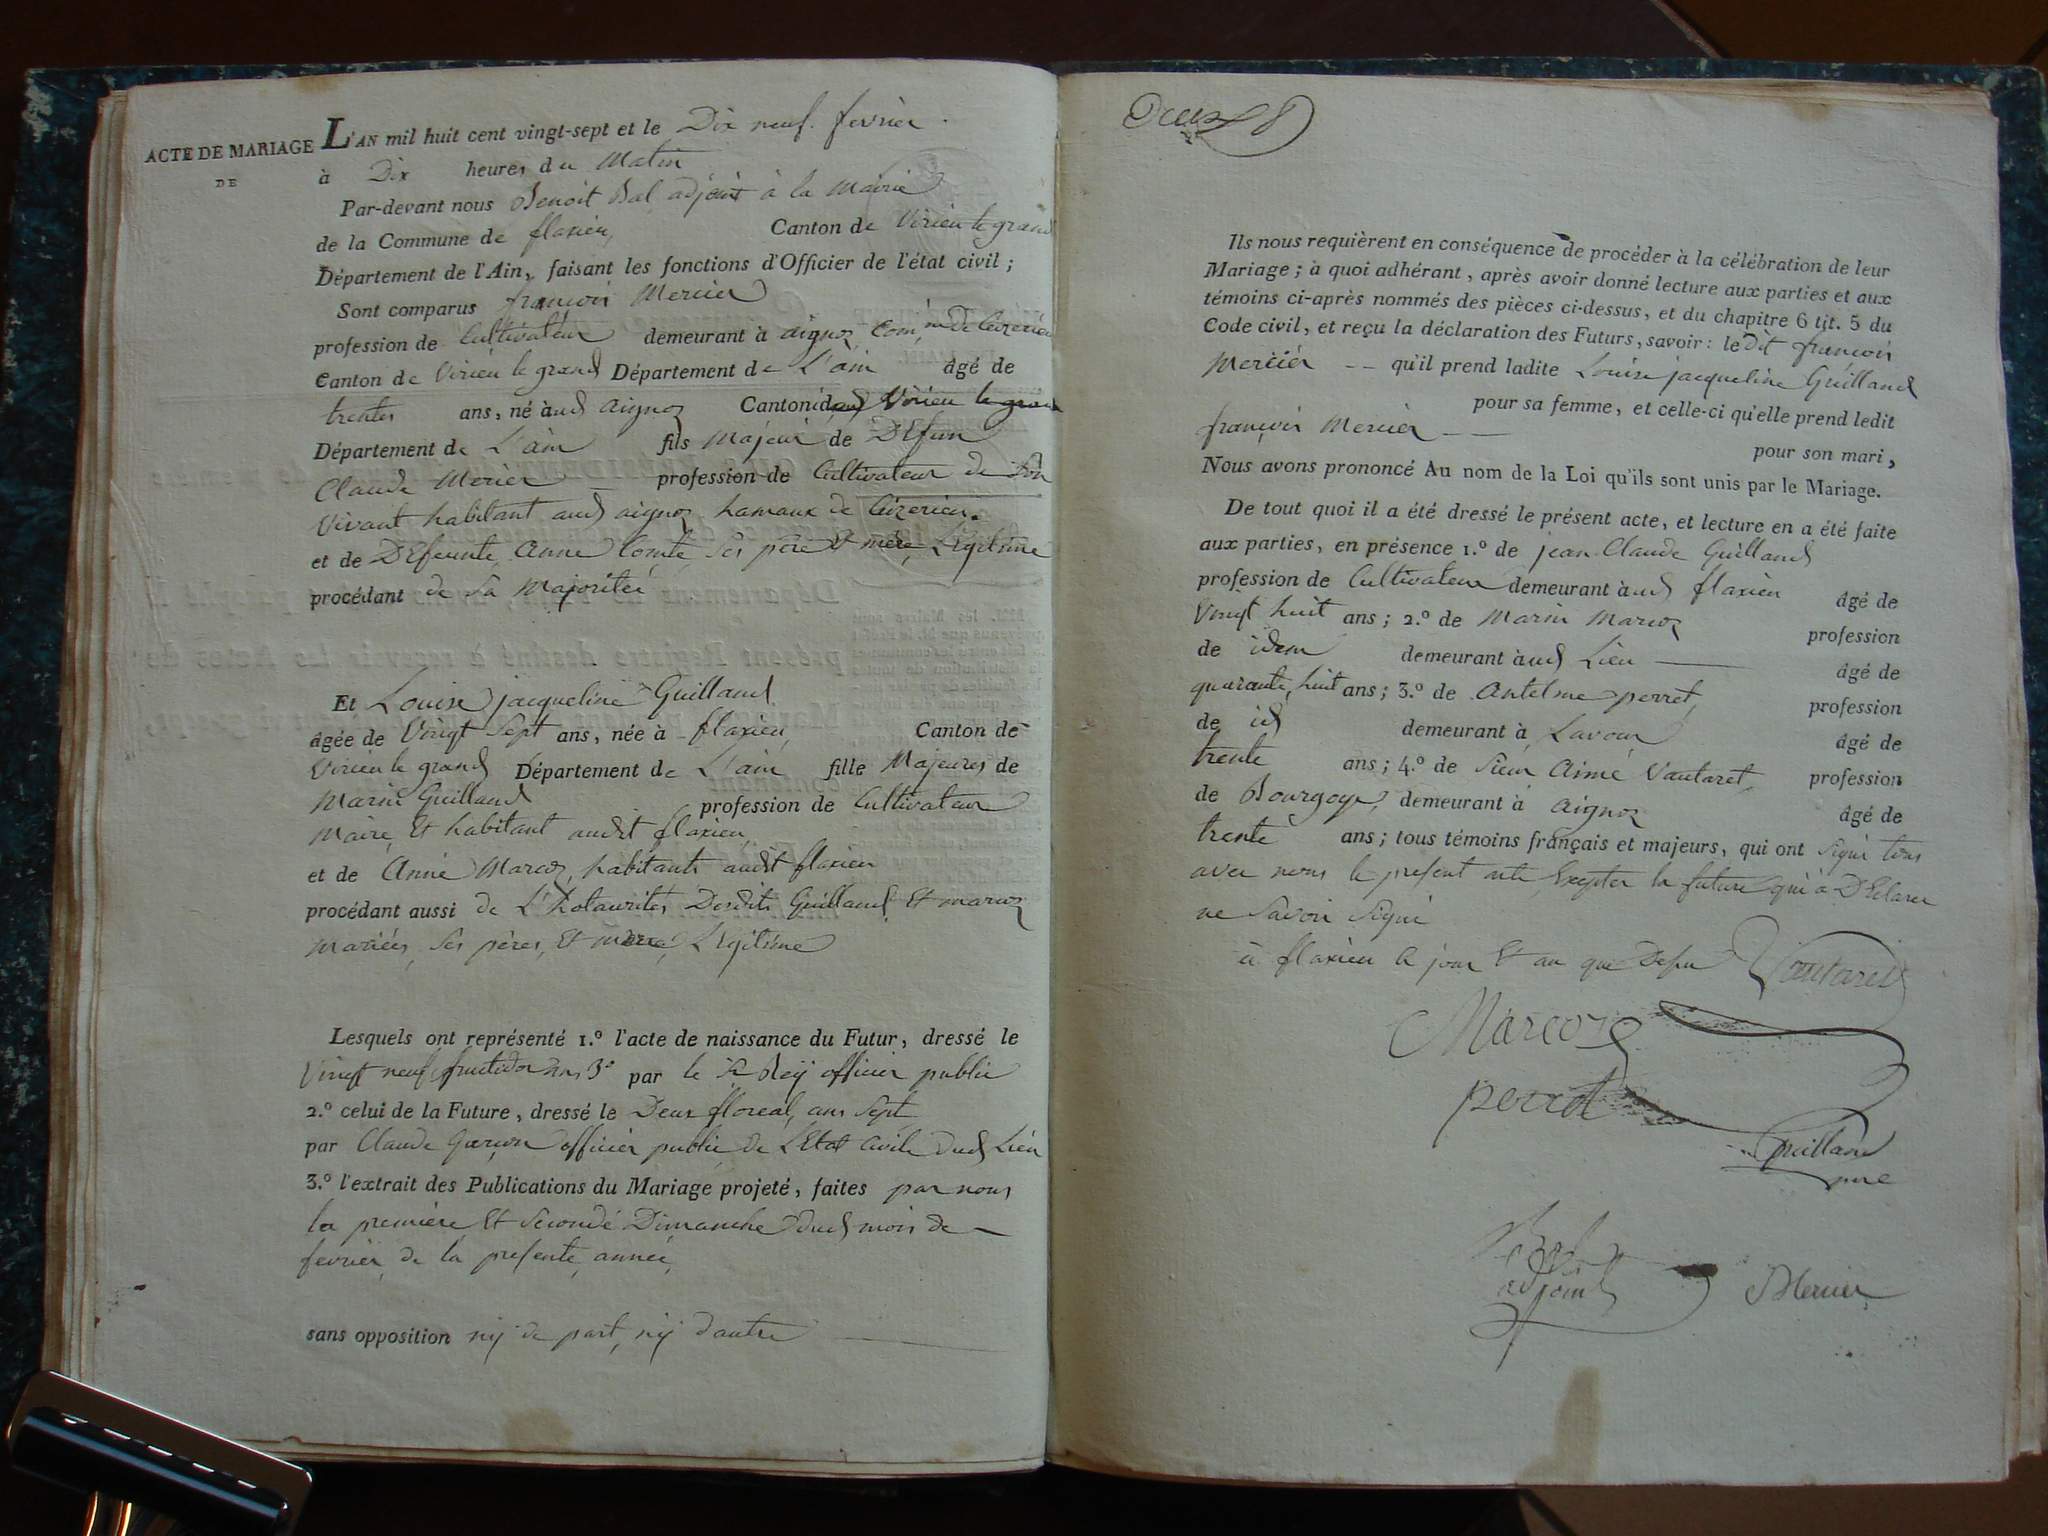 ACTE DE MARIAGE
DE
L'AN mil huit cent vingt-sept et le Dix neuf fevrier.
à Dix heures du Matin
Par-devant nous Benoit Bal adjoint à la Mairie
de la Commune de flaxieu, Canton de Virieu le grand
Département de l'Ain, faisant les fonctions d'Officier de l'état civil ;
Sont comparus françois Mercier
profession de Cultivateur demeurant à aignoz Com,ne de Ceizerieu
Canton de Virieu le grand Département de L'ain âgé de
trentes ans, né à ud aignoz Canton dud Virieu le grand
Département de L'ain fils Majeur de DEfun
Claude Merier profession de Cultivateur de son
Vivant habitant aud aignoz hamaux de Ceizerieu.
et de DEfeunte, Anne Comte, ses père et mère, Legitime
procédant de Sa Majoritée
Et Louise jacqueline Guilland
âgée de Vingt Sept ans, née à flaxieu, Canton de
Virieu le grand Département de L'ain fille Majeures de
Marin Guilland profession de Cultivateur
Maire, Et habitant audit flaxieu,
et de Anne Marcoz, habitants audit flaxieu
procédant aussi de L'hotaurités Desdits Guilland Et marcoz
Mariées, Ses pères, Et mère, LEgitime
Lesquels ont représenté 1.º l'acte de naissance du Futur, dressé le
Vingt neuf fructidor ans 3e par le Sr Reÿ officier public
2.º celui de la Future, dressé le Deux floreal, ans Sept
par Claude officier public de L'Etat Civile dud Lieu
3.º l'extrait des Publications du Mariage projeté, faites par nous
la première Et Seconde Dimanche dud mois de
fevrier, de la presente, année,
sans opposition nÿ de part, nÿ d'autre
Deux
Ils nous requièrent en conséquence de procéder à la célébration de leur
Mariage ; à quoi adhérant, après avoir donné lecture aux parties et aux
témoins ci-après nommés des pièces ci-dessus, et du chapitre 6 tit. 5 du
Code civil, et reçu la déclaration des Futurs, savoir : le dit françois
Mercier -- qu'il prend ladite Louise jacqueline Guilland
pour sa femme, et celle-ci qu'elle prend ledit
françois Mercier --
pour son mari,
Nous avons prononcé Au nom de la Loi qu'ils sont unis par le Mariage.
De tout quoi il a été dressé le présent acte, et lecture en a été faite
aux parties, en présence 1.º de jean Claude Guilland
profession de Cultivateur demeurant à ud flaxieu âgé de
Vingt huit ans ; 2.º de Marin Marcoz profession
de idem demeurant à ud Lieu âgé de
quarante, huit ans ; 3.º de Antelme perret, profession
de id demeurant à Lavour âgé de
trente ans ; 4.º de Sieur Aimé Vautaret, profession
de Bourgoye, demeurant à Aignoz âgé de
trente ans ; tous témoins français et majeurs, qui ont signé tous
avec nous le present acte Excepter la future qui a DEclarer
ne Savoir Signé
à flaxieu le jour Et an que Desu Vautaret
Marcoz
perret
Guilland
pere
Bal
adjoint Mercier